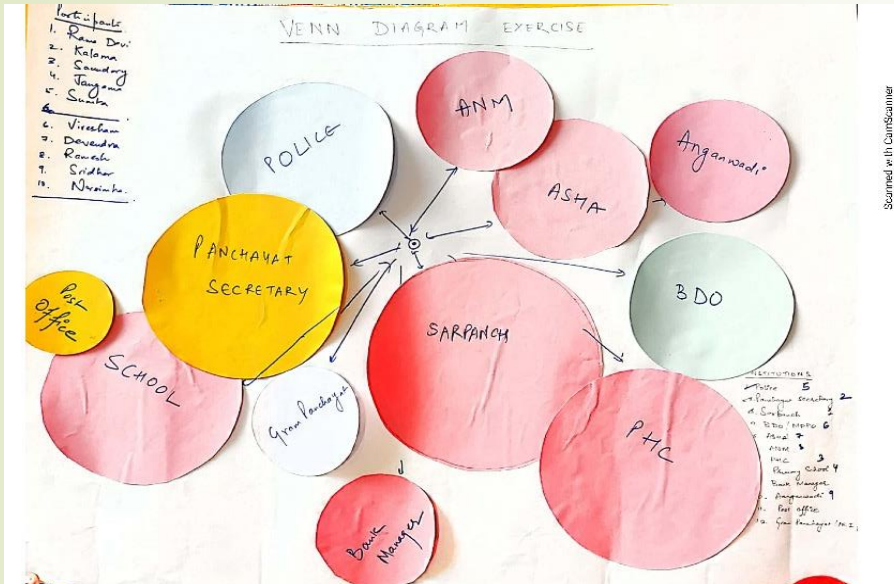 VENN DIAGRAM EXERCISE
Participants
1. Rama Devi
2. Kalama
3. Saundary
4. Jangama
5. Sunita
6. Viresham
7. Devendra
8. Ramesh
9. Sridhar
10. Narsimha.
POLICE
ANM
ASHA
Anganwadi
PANCHAYAT
SECRETARY
Post
Office
SCHOOL
Gram Panchayat
SARPANCH
BDO
PHC
Bank
Manager
INSTITUTIONS
Police 5
Panchayat Secretary 2
Sarpanch
BDO/MPDO 6
ASHA 7
ANM
PHC 3
Primary School 4
Bank Manager
Anganwadi 9
11. Post office
12. Gram Panchayat
Scanned with CamScanner